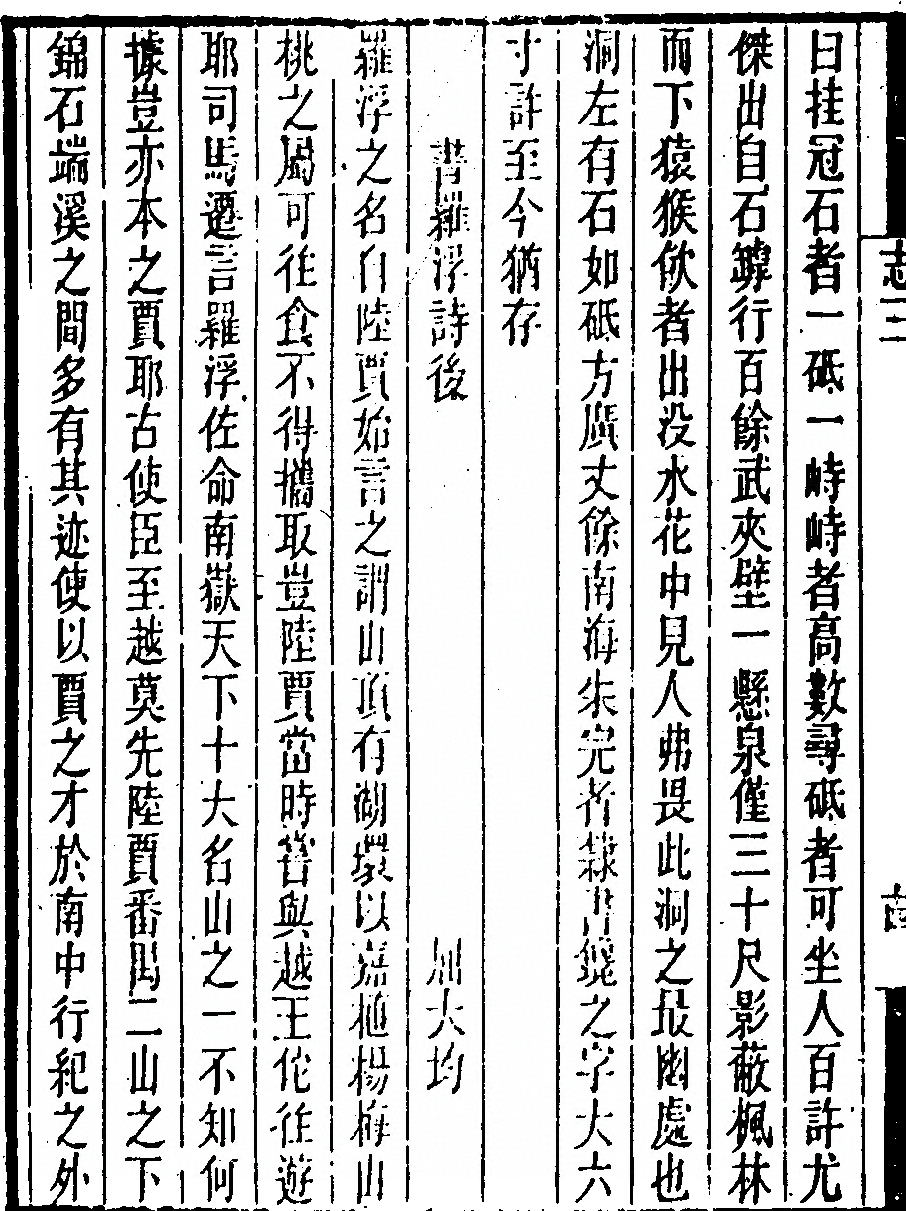 志三
曰挂冠石者一砥一峙峙者高數尋砥者可坐人百許尤
傑出自石罅行百餘武夾壁一懸泉僅三十尺影蔽楓林
而下猿猴飲者出没水花中見人弗畏此洞之最幽處也
洞左有石如砥方廣丈餘南海朱完者隸書鑱之字大六
寸許至今猶存
書羅浮詩後 屈大均
羅浮之名自陸賈始言之謂山頂有湖環以嘉植楊梅山
桃之屬可往食不得攜取豈陸賈當時嘗與越王佗往遊
耶司馬遷言羅浮佐命南嶽天下十大名山之一不知何
據豈亦本之賈耶古使臣至越莫先陸賈番禺二山之下
錦石端溪之間多有其迹使以賈之才於南中行紀之外